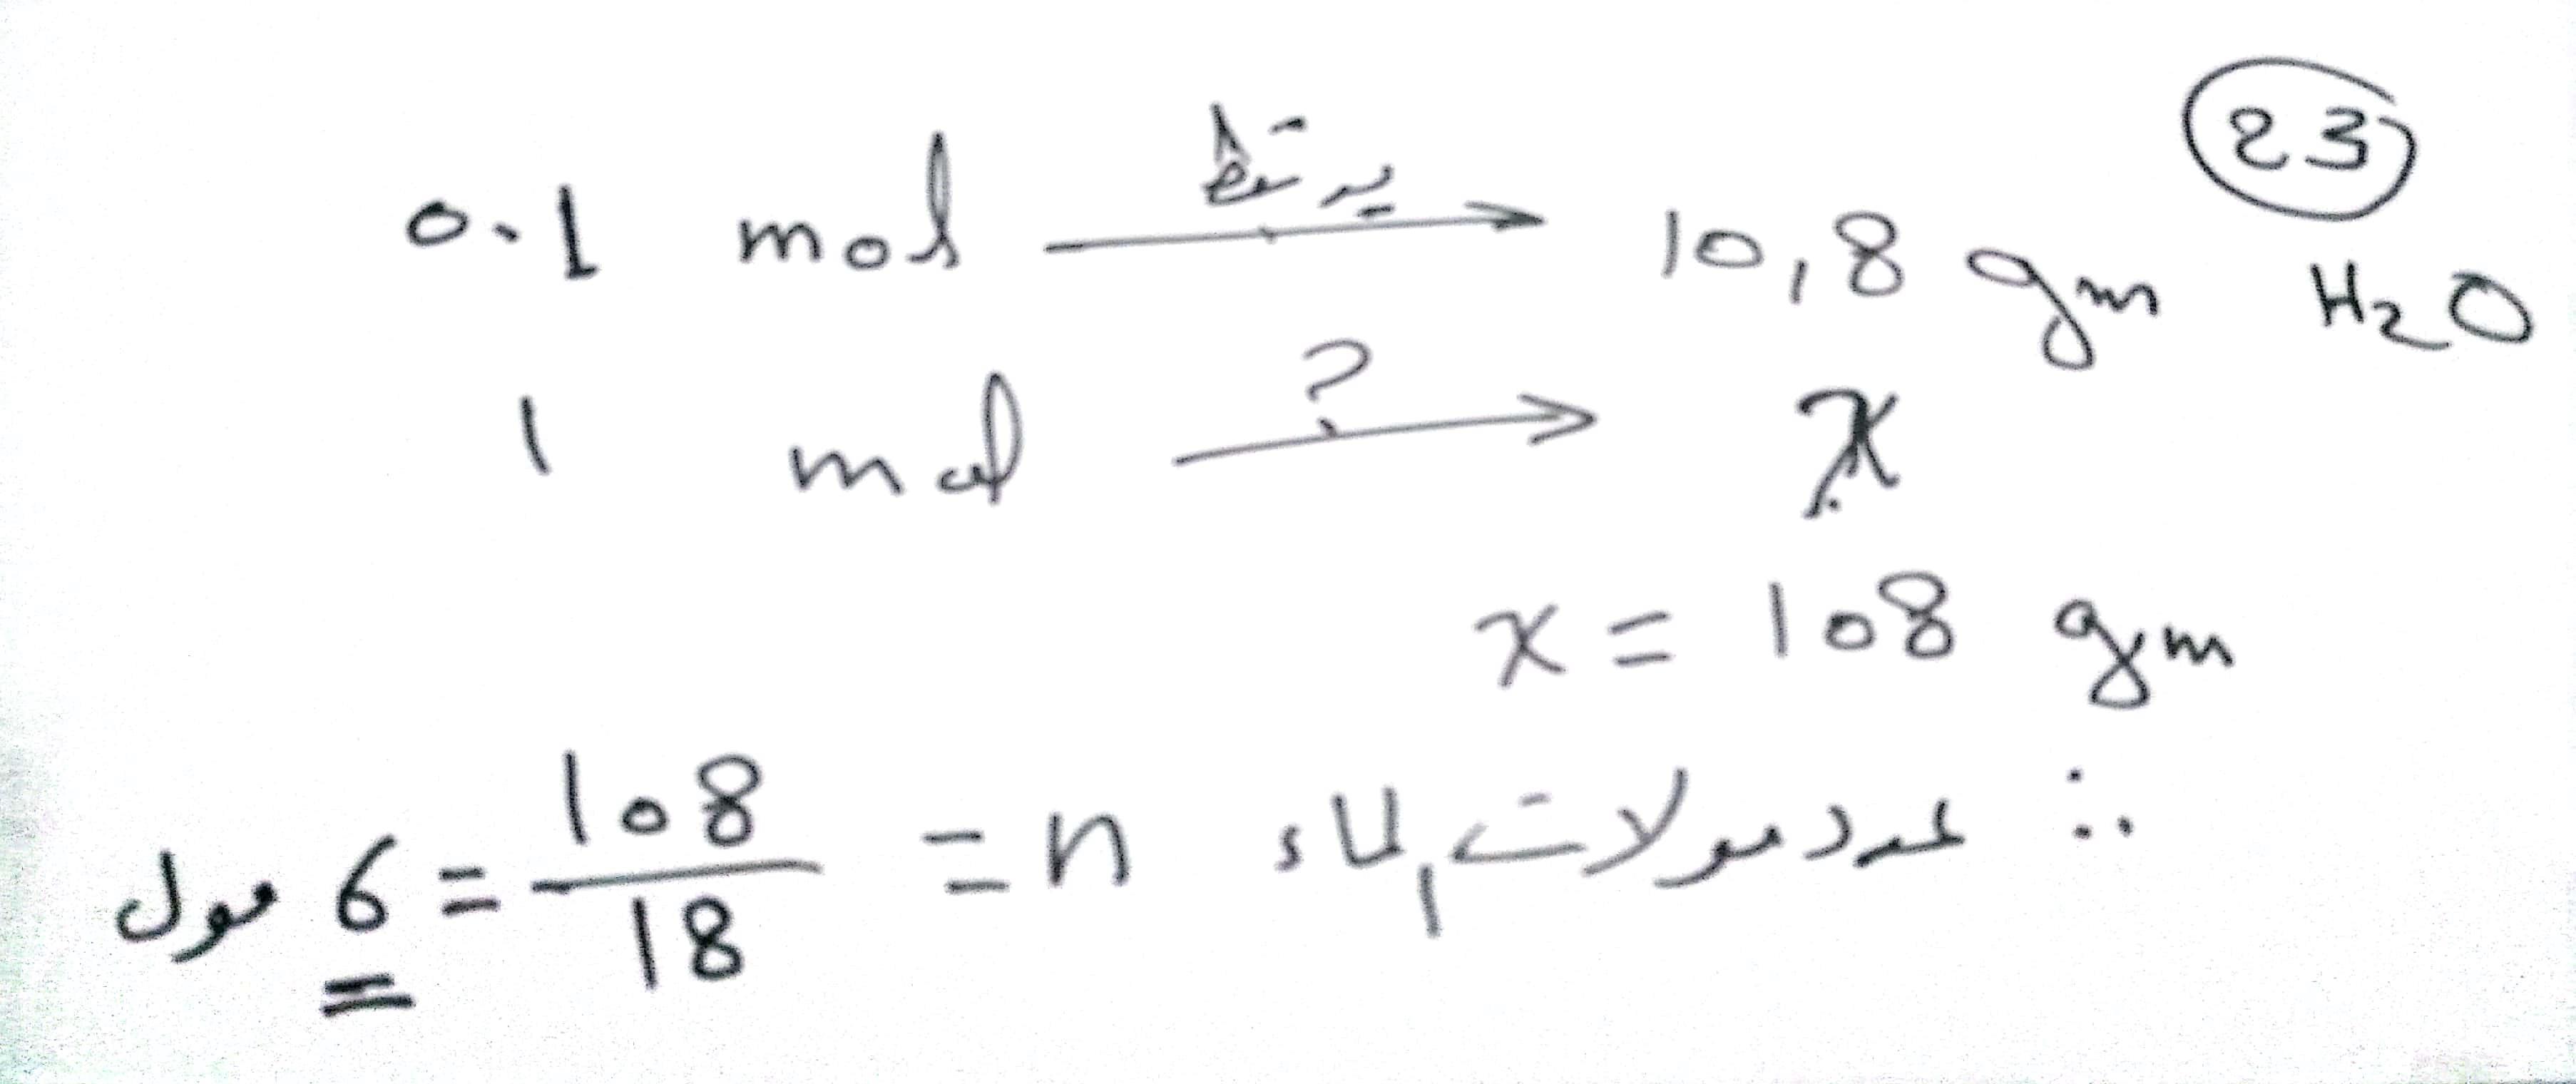 23
0.1 mol يرتبط → 10,8 gm H2O
1 mol ? → x
x = 108 gm
∴ عدد مولات الماء n = 108/18 = 6 مول